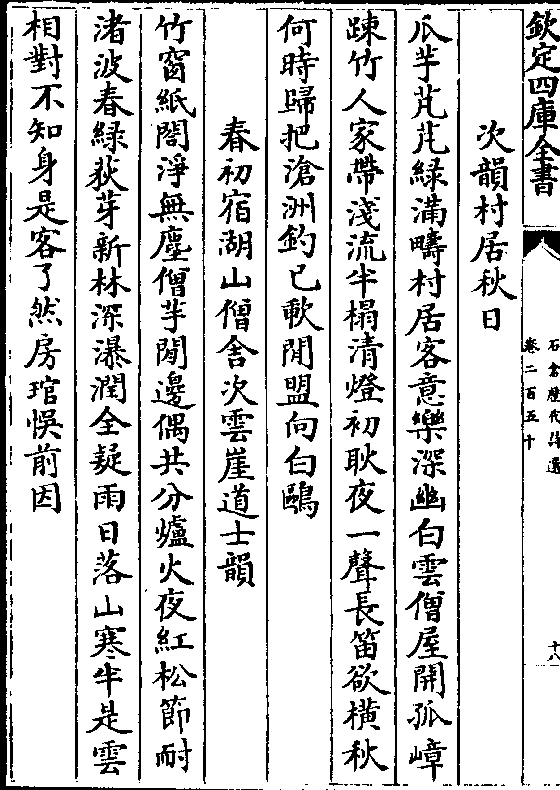 欽定四庫全書
石倉歷代詩選
卷二百五十
十八
次韻村居秋日
瓜芋芃芃綠滿疇村居客意樂深幽白雲僧屋開孤嶂
踈竹人家帶淺流半榻清燈初耿夜一聲長笛欲橫秋
何時歸把滄洲釣已歃閒盟向白鷗
春初宿湖山僧舎次雲崖道士韻
竹窗紙閤淨無塵僧芋閒邊偶共分爐火夜紅松節耐
渚波春綠荻芽新林深瀑潤全疑雨日落山寒半是雲
相對不知身是客了然房琯悞前因